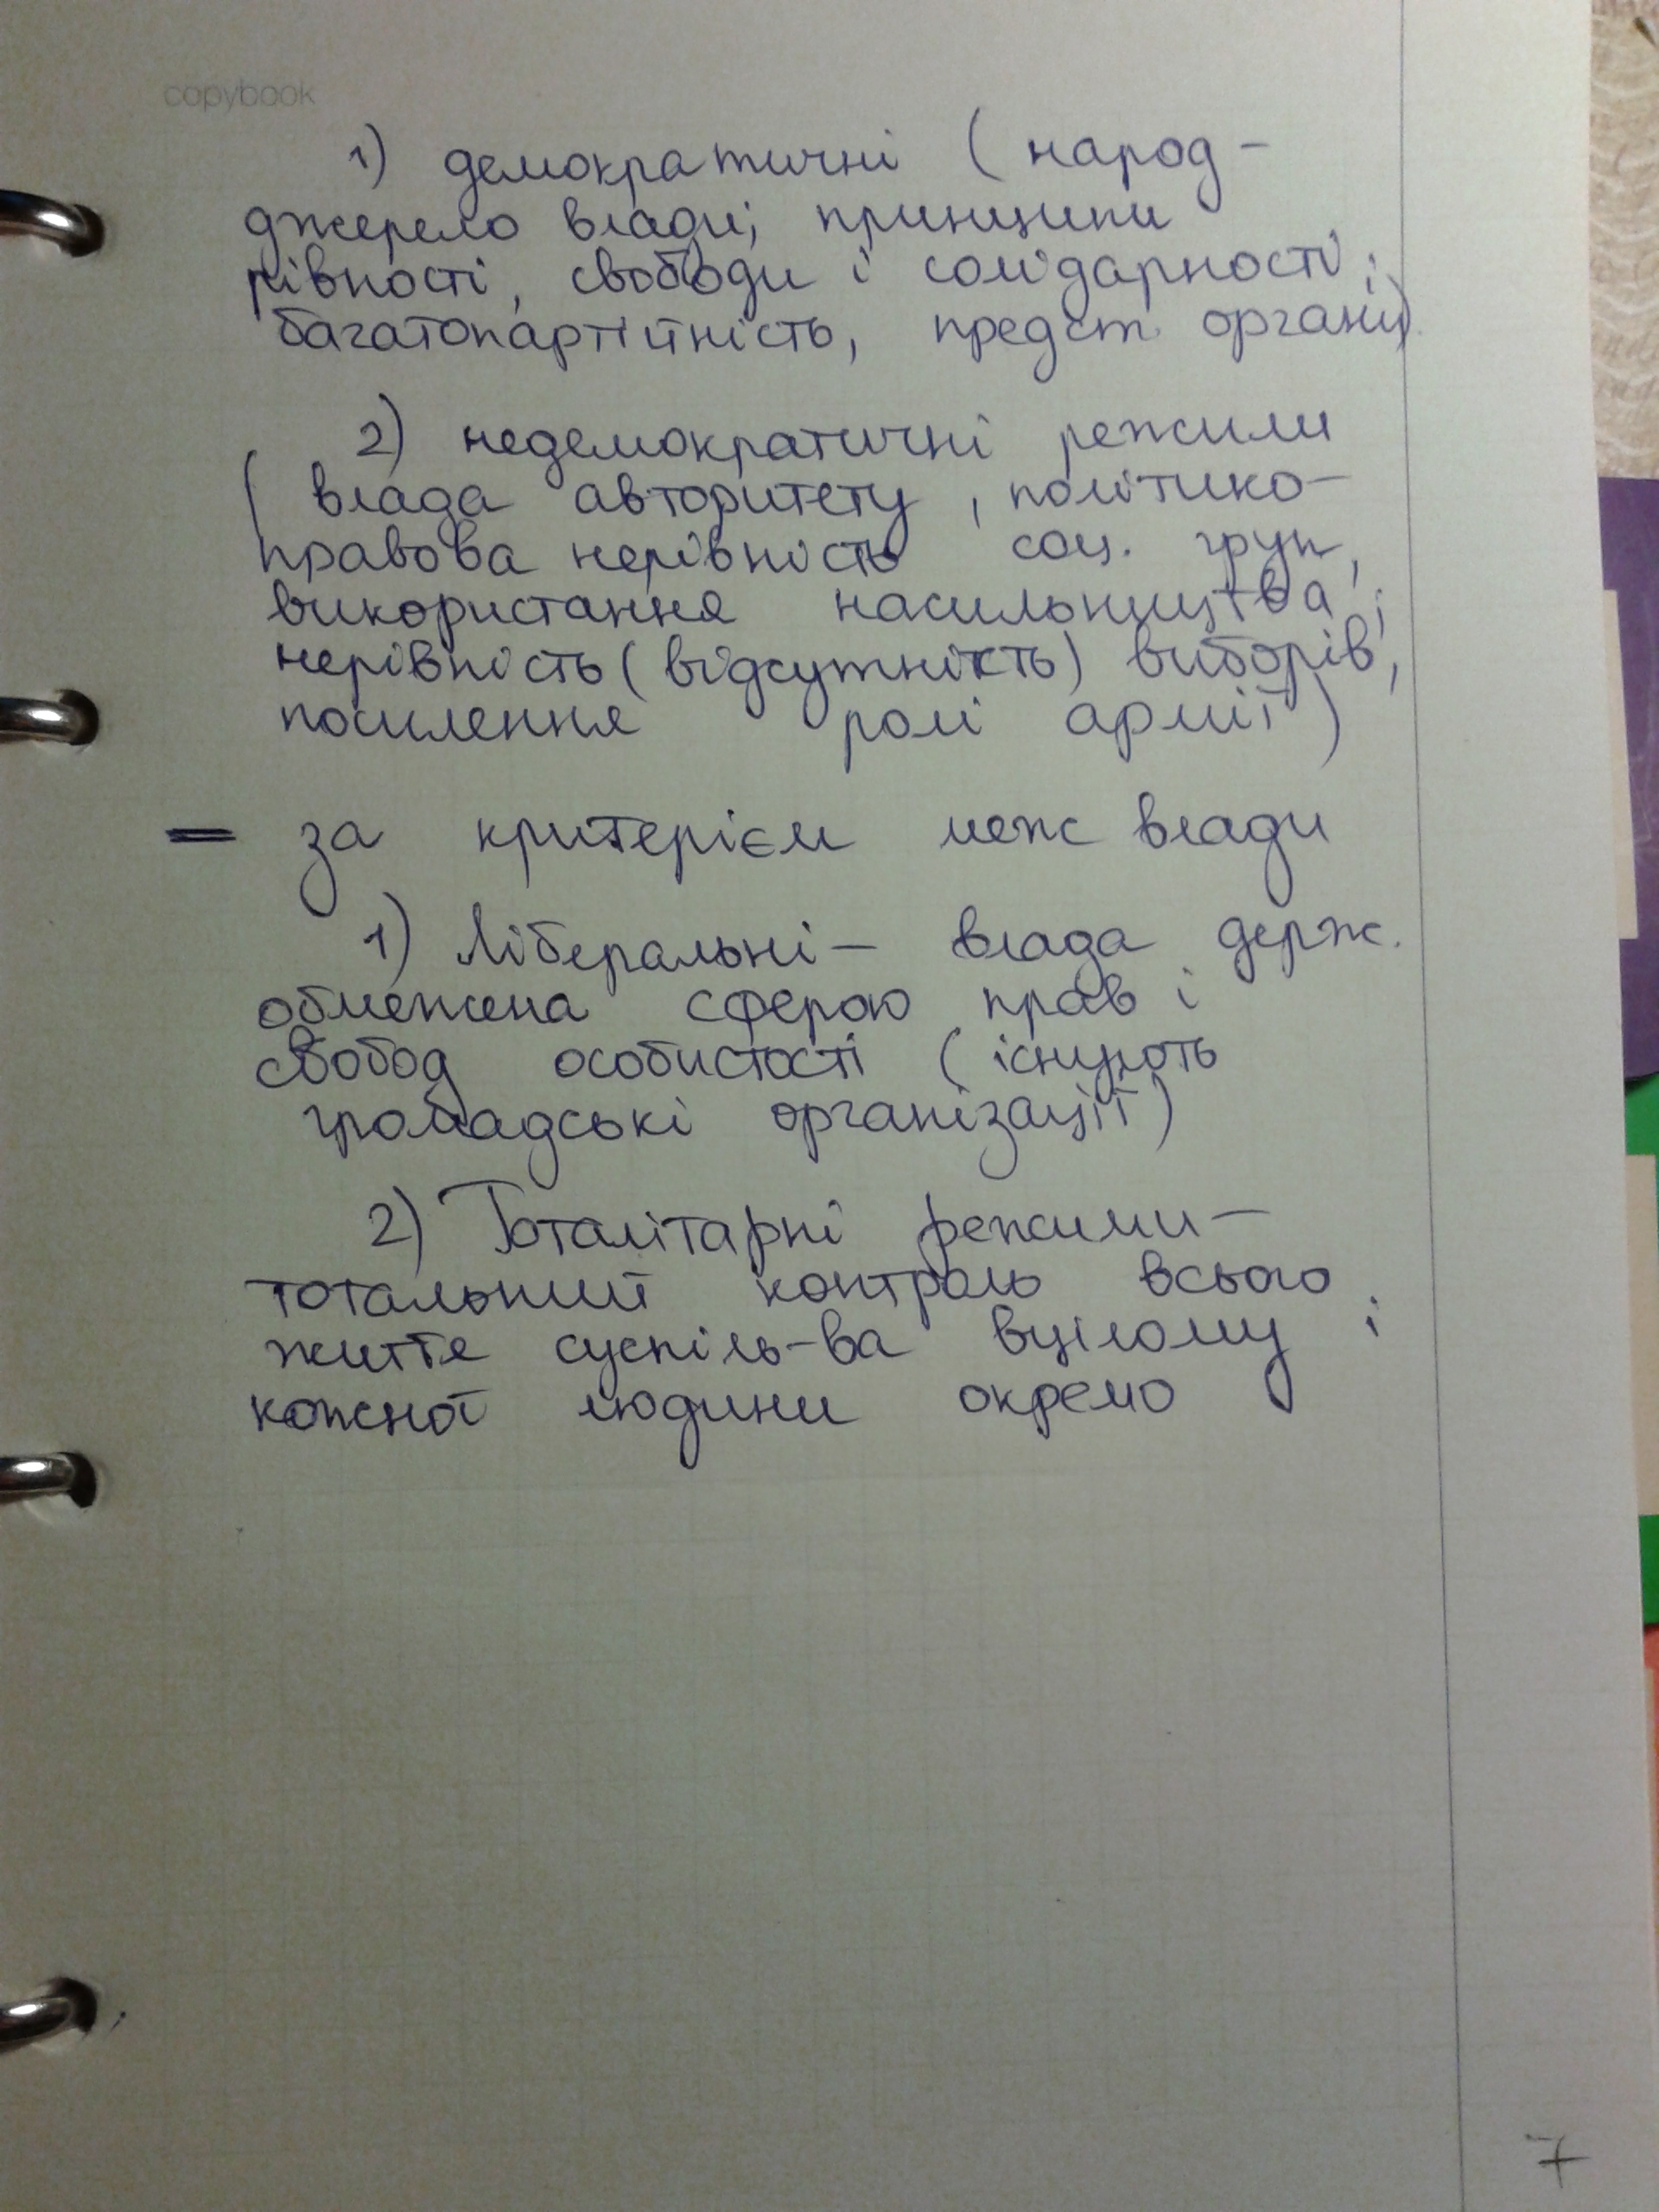 copybook
1) демократичні (народ -
джерело влади; принципи
рівності, свободи і солідарності;
багатопартійність, предст. органи)
2) недемократичні режими
(влада авторитету, політико-
правова нерівність соц. груп,
використання насильництва;
нерівність (відсутність) виборів,
посилення ролі армії)
— за критерієм меж влади
1) Ліберальні — влада держ.
обмежена сферою прав і
свобод особистості (існують
громадські організації)
2) Тоталітарні режими —
тотальний контроль всього
життя суспіль-ва вцілому і
кожної людини окремо
7